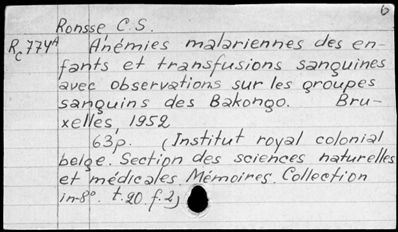 6
Ronsse, C.S.
Rc774A Anémies malariennes des en-
fants et transfusions sanguines
avec observations sur les groupes
sanguins des Bakongo. Bru-
xelles, 1952
63p. (Institut royal colonial
belge. Section des sciences naturelles
et médicales Mémoires. Collection
in-8º. t.20. f.2)